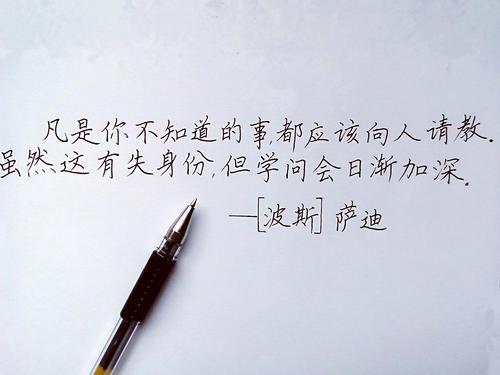 凡是你不知道的事,都应该向人请教.
虽然这有失身份,但学问会日渐加深.
—[波斯] 萨迪